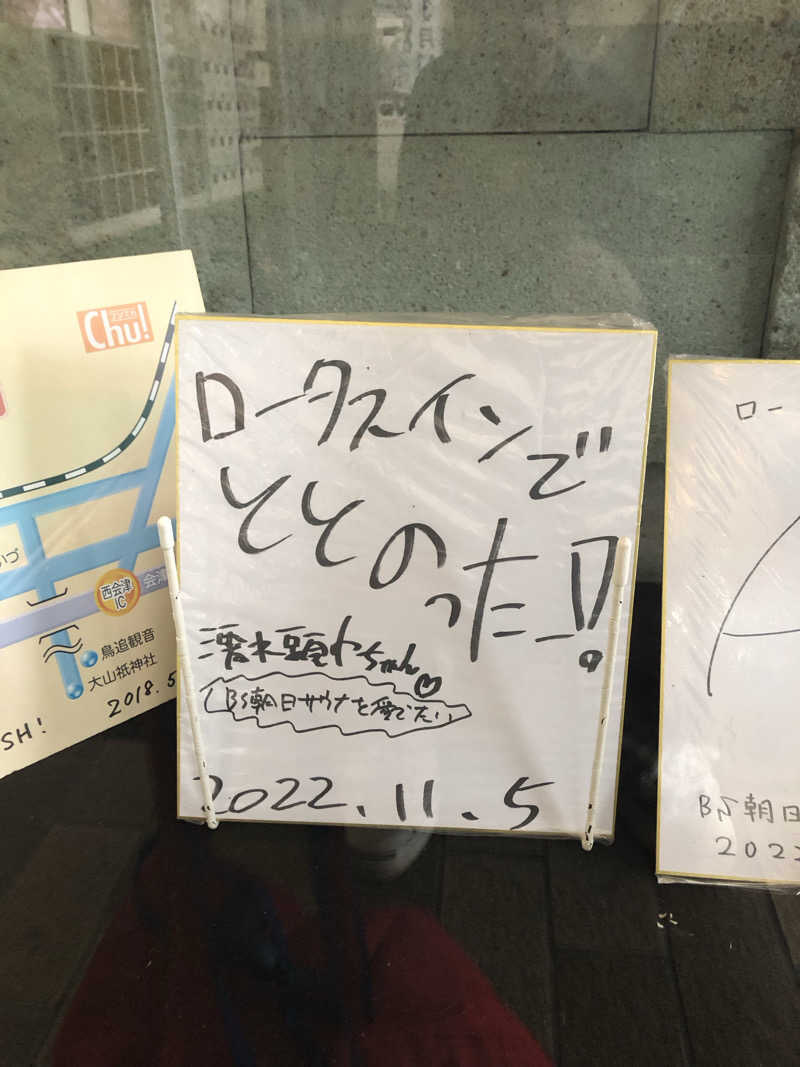 コンてん
Chu!
いづ
西会津
IC
会津
鳥追観音
大山祇神社
2018.5
SH!
ロータスインで
ととのった_!!
清水みさとちゃん♡
BS朝日サウナを愛でたい
2022.11.5
ロー
BS朝日
2022